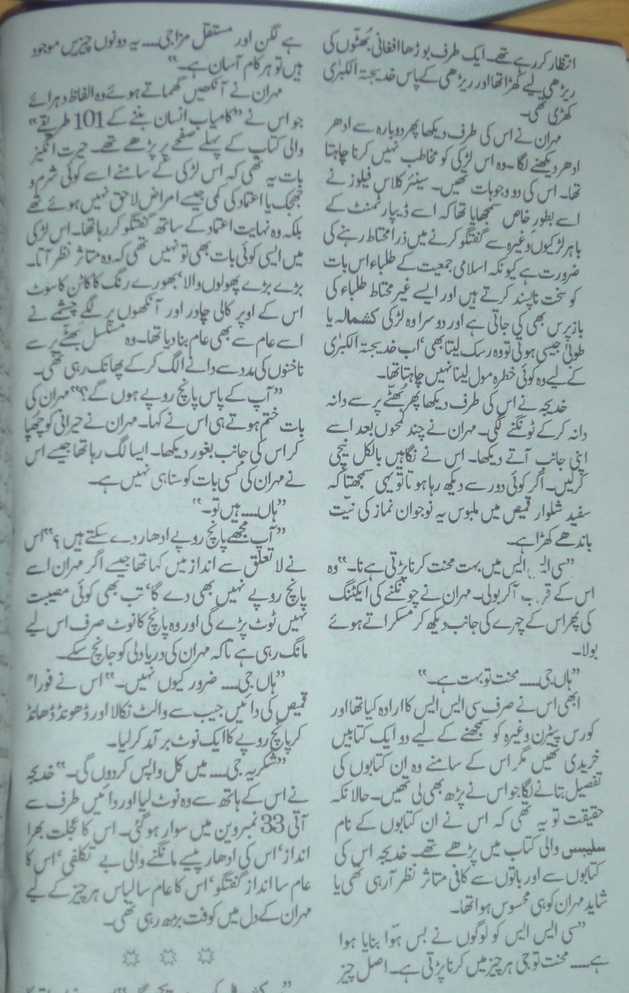 انتظار کر رہے تھے۔ ایک طرف بوڑھا افغانی بھٹوں کی
ریڑھی لیے کھڑا تھا اور ریڑھی کے پاس خدیجۃ الکبریٰ
کھڑی تھی۔
مہران نے اس کی طرف دیکھا پھر دوبارہ سے ادھر
ادھر دیکھنے لگا۔ وہ اس لڑکی کو مخاطب نہیں کرنا چاہتا
تھا۔ اس کی دو وجوہات تھیں۔ سینئر کلاس فیلوز نے
اسے بطور خاص سمجھایا تھا کہ اسے ڈیپارٹمنٹ کے
باہر لڑکیوں وغیرہ سے گفتگو کرنے میں ذرا محتاط رہنے کی
ضرورت ہے کیونکہ اسلامی جمعیت کے طلباء اس بات
کو سخت ناپسند کرتے ہیں اور ایسے غیر محتاط طلباء کی
باز پرس بھی کی جاتی ہے اور دوسرا وہ لڑکی کشمالہ یا
طوبیٰ جیسی ہوتی تو وہ رسک لیتا بھی، اب خدیجۃ الکبریٰ
کے لیے وہ کوئی خطرہ مول لینا نہیں چاہتا تھا۔
خدیجہ نے اس کی طرف دیکھا پھر بھٹے پر سے دانہ
دانہ کر کے ٹونگنے لگی۔ مہران نے چند لمحوں بعد اسے
اپنی جانب آتے دیکھا۔ اس نے نگاہیں بالکل نیچی
کر لیں۔ اگر کوئی دور سے دیکھ رہا ہوتا تو یہی سمجھتا کہ
سفید شلوار قمیص میں ملبوس یہ نوجوان نماز کی نیت
باندھے کھڑا ہے۔
"سی ایس ایس میں بہت محنت کرنا پڑتی ہے نا۔" وہ
اس کے قریب آ کر بولی۔ مہران نے چونکنے کی ایکٹنگ
کی پھر اس کے چہرے کی جانب دیکھ کر مسکراتے ہوئے
بولا۔
"ہاں جی۔۔۔۔ محنت تو بہت ہے۔"
ابھی اس نے صرف سی ایس ایس کا ارادہ کیا تھا اور
کورس پیٹرن وغیرہ کو سمجھنے کے لیے دو ایک کتابیں
خریدی تھیں مگر اس کے سامنے وہ ان کتابوں کی
تفصیل بتانے لگا جو اس نے پڑھ بھی لی تھیں۔ حالانکہ
حقیقت تو یہ تھی کہ اس نے ان کتابوں کے نام
سلیبس والی کتاب میں پڑھے تھے۔ خدیجہ اس کی
کتابوں سے اور باتوں سے کافی متاثر نظر آ رہی تھی یا
شاید مہران کو ہی محسوس ہوا تھا۔
"سی ایس ایس کو لوگوں نے بس ہوّا بنایا ہوا
ہے۔۔۔۔ محنت تو جی ہر چیز میں کرنا پڑتی ہے۔ اصل چیز
ہے لگن اور مستقل مزاجی۔۔۔۔ یہ دونوں چیزیں موجود
ہیں تو ہر کام آسان ہے۔"
مہران نے آنکھیں گھماتے ہوئے وہ الفاظ دہرائے
جو اس نے "کامیاب انسان بننے کے 101 طریقے"
والی کتاب کے پہلے صفحے پر پڑھے تھے۔ حیرت انگیز
بات یہ تھی کہ اس لڑکی کے سامنے اسے کوئی شرم و
جھجک یا اعتماد کی کمی جیسے امراض لاحق نہیں ہوئے تھے
بلکہ وہ نہایت اعتماد کے ساتھ گفتگو کر رہا تھا۔ اس لڑکی
میں ایسی کوئی بات بھی تو نہیں تھی کہ وہ متاثر نظر آتا۔
بڑے بڑے پھولوں والا، بھورے رنگ کا کاٹن کا سوٹ
اس کے اوپر کالی چادر اور آنکھوں پر لگے چشمے نے
اسے عام سے بھی عام بنا دیا تھا۔ وہ مسلسل بھٹے پر سے
ناخنوں کی مدد سے دانے الگ کر کے پھانک رہی تھی۔
"آپ کے پاس پانچ روپے ہوں گے؟" مہران کی
بات ختم ہوتے ہی اس نے کہا۔ مہران نے حیرانی کو چھپا
کر اس کی جانب بغور دیکھا۔ ایسا لگ رہا تھا جیسے اس
نے مہران کی کسی بات کو سنا ہی نہیں ہے۔
"ہاں۔۔۔۔ ہیں تو۔"
"آپ مجھے پانچ روپے ادھار دے سکتے ہیں؟" اس
نے لاتعلق سے انداز میں کہا تھا جیسے اگر مہران اسے
پانچ روپے نہیں بھی دے گا، تب بھی کوئی مصیبت
نہیں ٹوٹ پڑے گی اور وہ پانچ کا نوٹ صرف اس لیے
مانگ رہی ہے تاکہ مہران کی دریا دلی کو جانچ سکے۔
"ہاں جی۔۔۔۔ ضرور کیوں نہیں۔" اس نے فوراً
قمیص کی دائیں جیب سے والٹ نکالا اور ڈھونڈ ڈھانڈ
کر پانچ روپے کا ایک نوٹ برآمد کر لیا۔
"شکریہ جی۔۔۔۔ میں کل واپس کر دوں گی۔" خدیجہ
نے اس کے ہاتھ سے وہ نوٹ لیا اور دائیں طرف سے
آتی 33 نمبر وین میں سوار ہو گئی۔ اس کا عجلت بھرا
انداز، اس کی ادھار پیسے مانگنے والی بے تکلفی، اس کا
عام سا انداز گفتگو، اس کا عام سا لباس ہر چیز کے لیے
مہران کے دل میں کوفت بڑھ رہی تھی۔